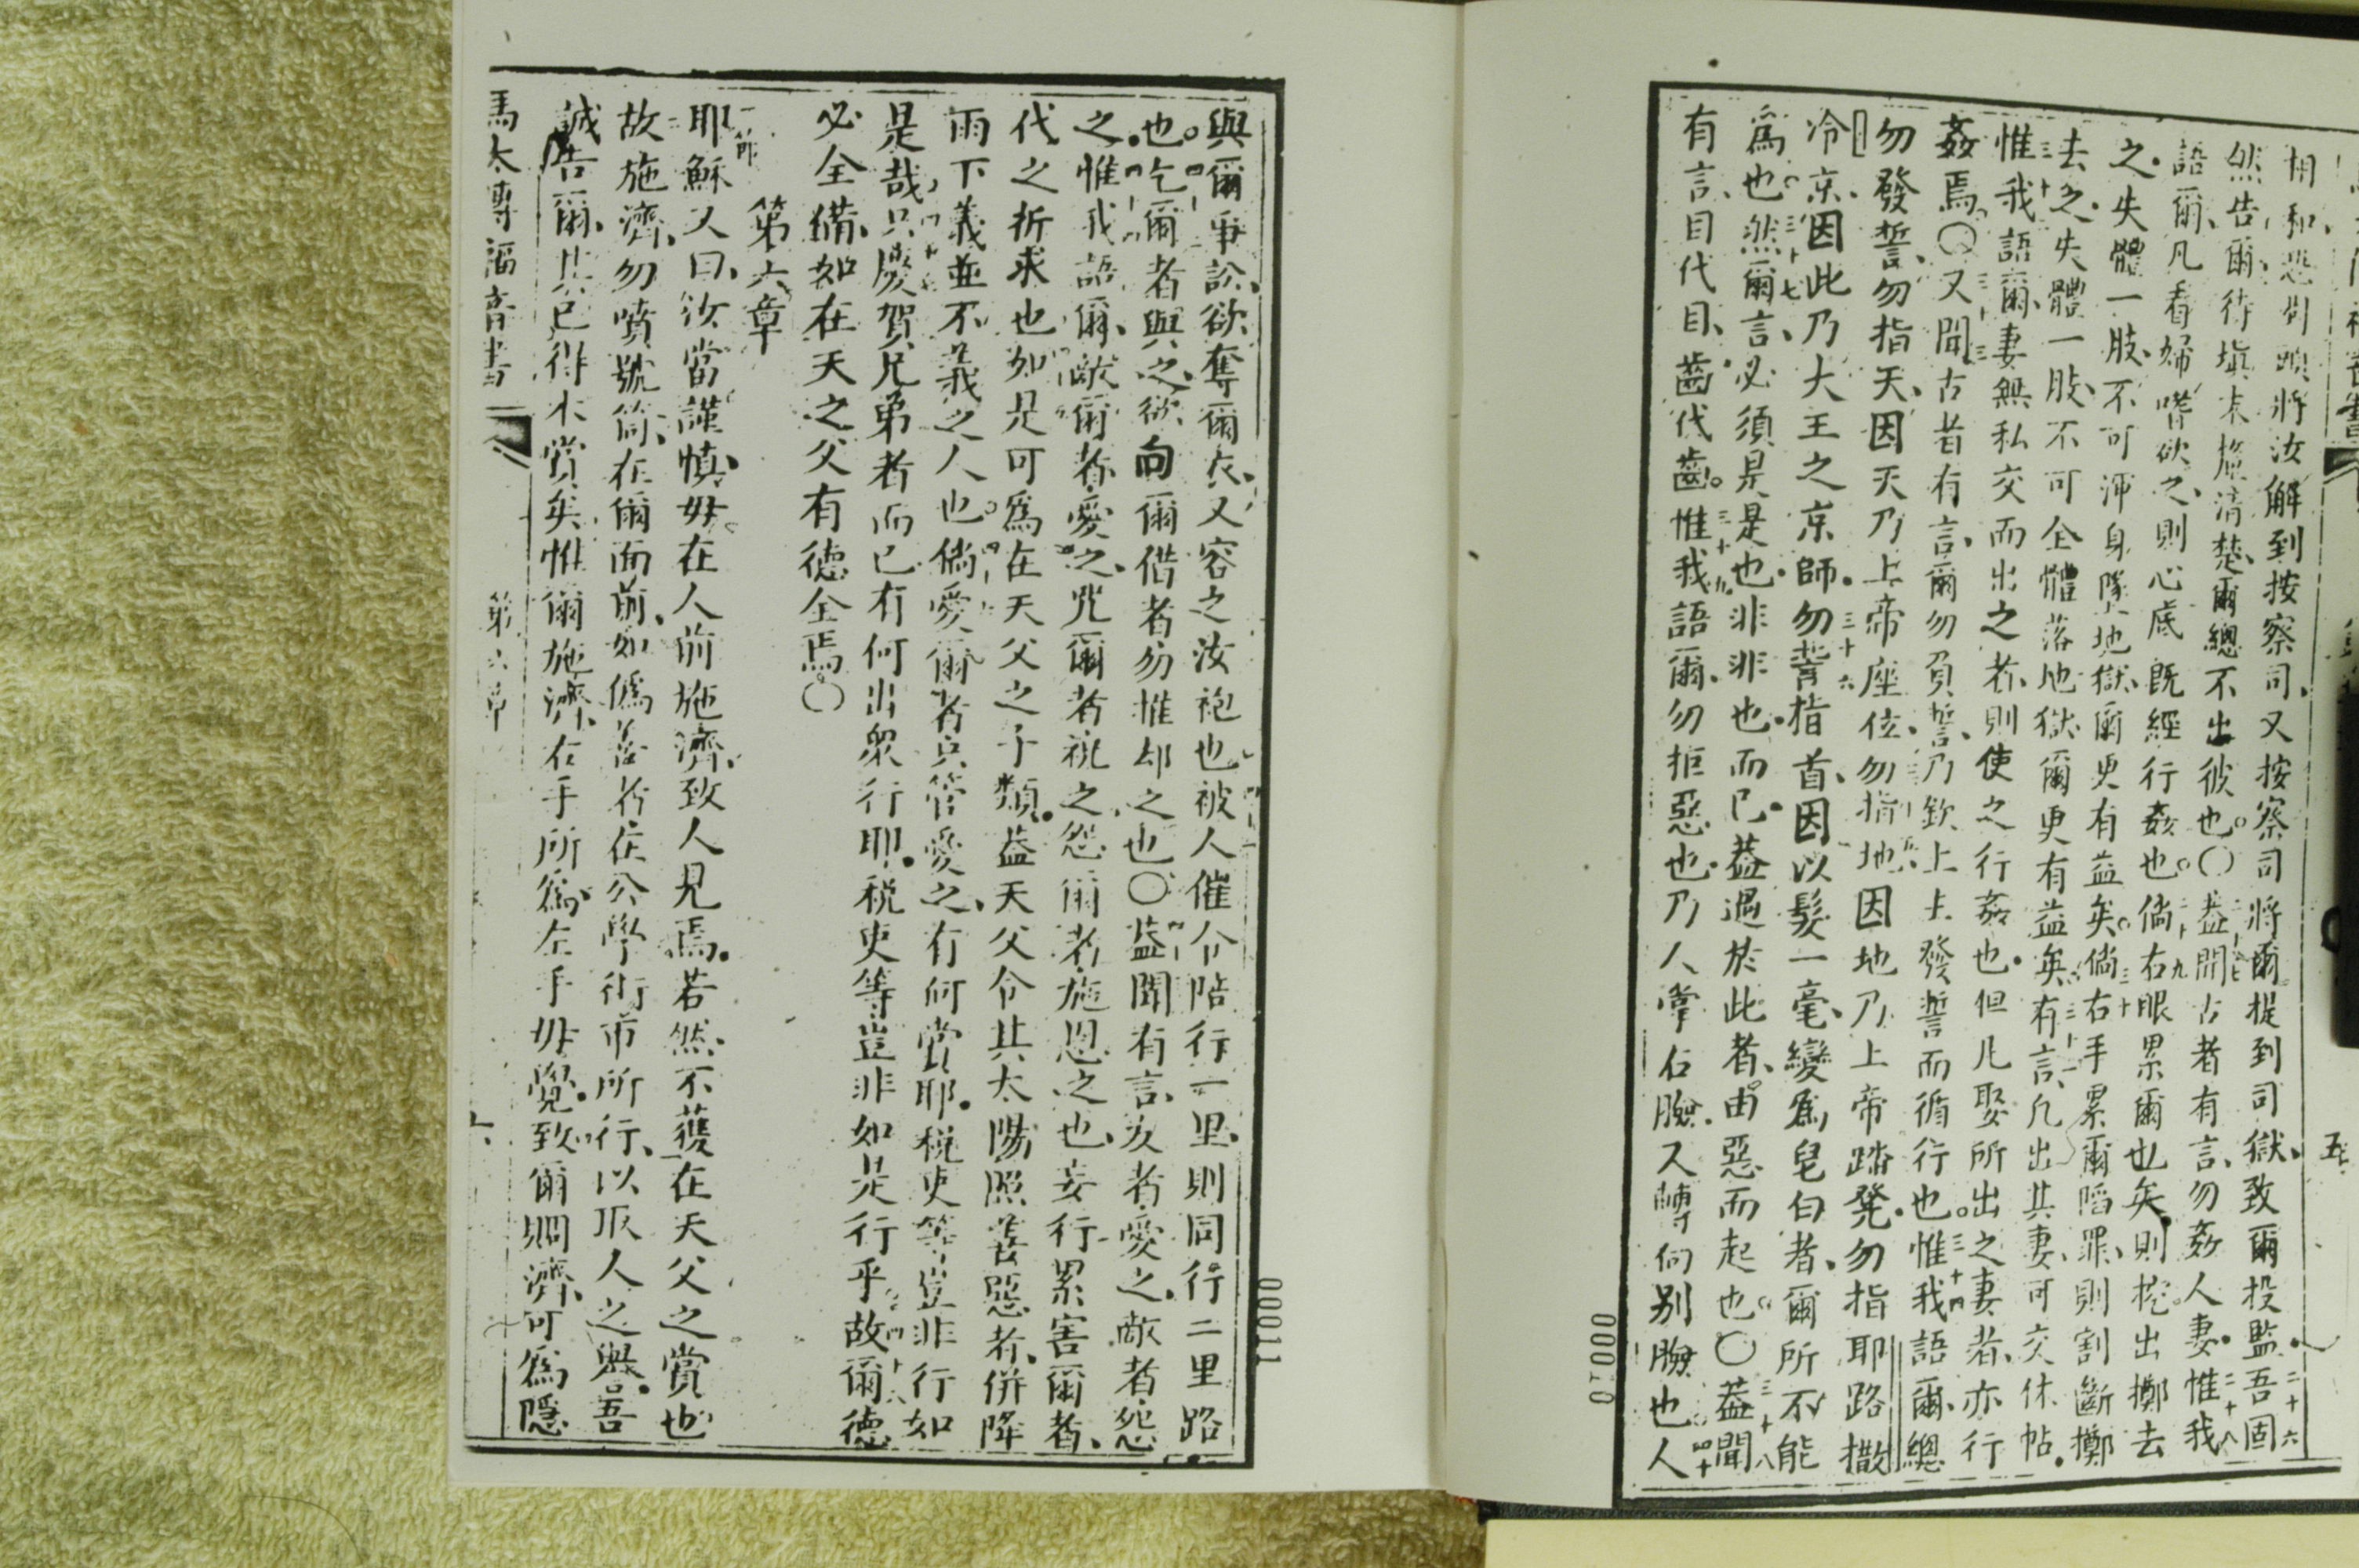 五
然告爾待塡末撫清楚爾總不出彼也〇蓋聞古者有言勿姦人妻惟我
語爾凡看婦嗜欲之則心底既經行姦也倘右眼累爾也矣則挖出擲去
之失體一肢不可渾身墜地獄爾更有益矣倘右手累爾陷罪則割斷擲
去之失體一肢不可全體落地獄爾更有益矣有言凡出其妻可交休帖
惟我語爾妻無私交而出之者則使之行姦也但凡娶所出之妻者亦行
姦焉〇又聞古者有言爾勿負誓乃欽上上發誓而循行也惟我語爾總
勿發誓勿指天因天乃上帝座位勿指地因地乃上帝踏凳勿指耶路撒
冷京因此乃大王之京師勿嘗指首因以髮一毫變爲皂白者爾所不能
爲也然爾言必須是是也非非也而已蓋過於此者由惡而起也〇蓋聞
有言目代目齒代齒惟我語爾勿拒惡也乃人掌右臉又轉向別臉也人
00010
00011
與爾爭訟欲奪爾衣又容之汝袍也被人催令陪行一里則同行二里路
也乞爾者與之欲向爾借者勿推却之也〇蓋聞有言友者愛之敵者怨
之惟我語爾敵爾者愛之咒爾者祝之怨爾者施恩之也妄行累害爾者
代之祈求也如是可爲在天父之子類蓋天父令其太陽照善惡者併降
雨下義並不義之人也倘愛爾者只管愛之有何賞耶稅吏等豈非行如
是哉只慶賀兄弟者而已有何出衆行耶稅吏等豈非如是行乎故爾德
必全備如在天之父有德全焉〇
第六章
一節
耶穌又曰汝當謹慎毋在人前施濟致人見焉若然不獲在天父之賞也
故施濟勿噴號筒在爾面前如僞善者在公學術市所行以取人之譽吾
誠告爾其已得本賞矣惟爾施濟右手所爲左手毋覺致爾賙濟可爲隱
馬太傳福音書
第六章
六